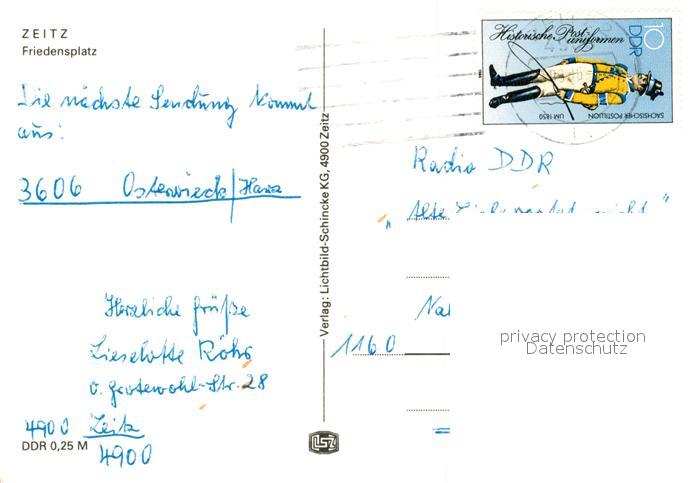 ZEITZ
Friedensplatz
Die nächste Sendung kommt
aus:
3606 Osterwieck/Harz
Herzliche Grüße
Lieselotte Röhr
O. Grotewohl-Str. 28
4900 Zeitz
DDR 0,25 M
4900
Verlag: Lichtbild-Schincke KG, 4900 Zeitz
LSZ
Historische Post-
uniformen
10
DDR
SÄCHSISCHER POSTILLION
UM 1850
Radio DDR
" Alte Liebe rostet nicht "
Nal
1160
privacy protection
Datenschutz